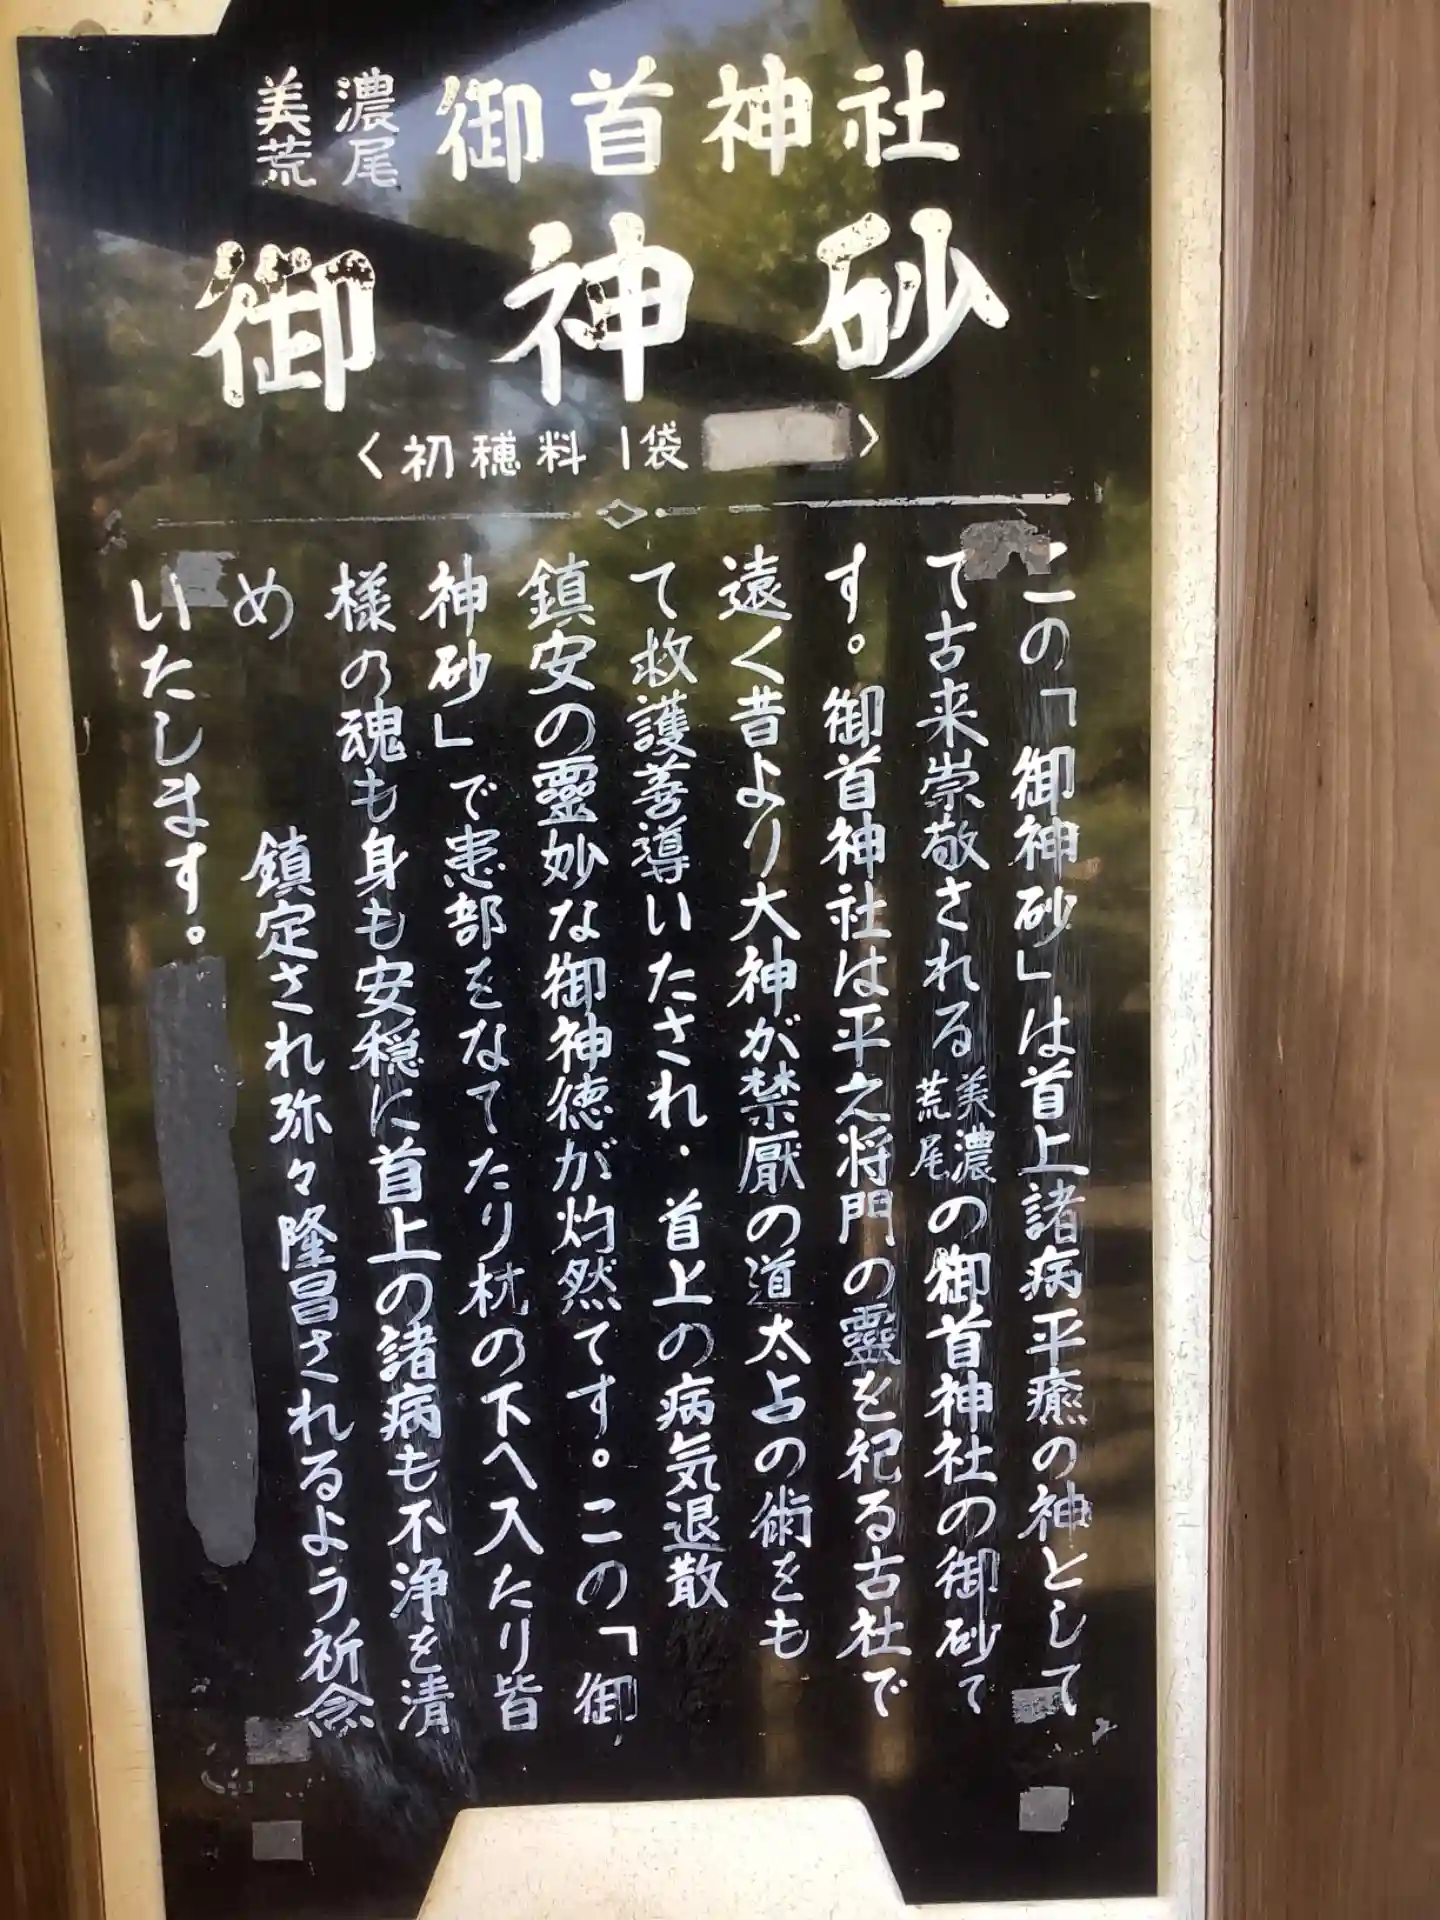 美濃
荒尾
御首神社
御神砂
〈初穂料1袋　〉
この「御神砂」は首上諸病平癒の神として
て古来崇敬される美濃荒尾の御首神社の御砂て
す。御首神社は平之将門の靈を祀る古社で
遠く昔より大神が禁厭の道太占の術をも
て救護善導いたされ・首上の病気退散
鎮安の靈妙な御神徳が灼然てす。この「御
神砂」で患部をなてたり枕の下へ入たり皆
様の魂も身も安穏に首上の諸病も不浄を清
め　鎮定され弥々隆昌されるよう祈念
いたします。